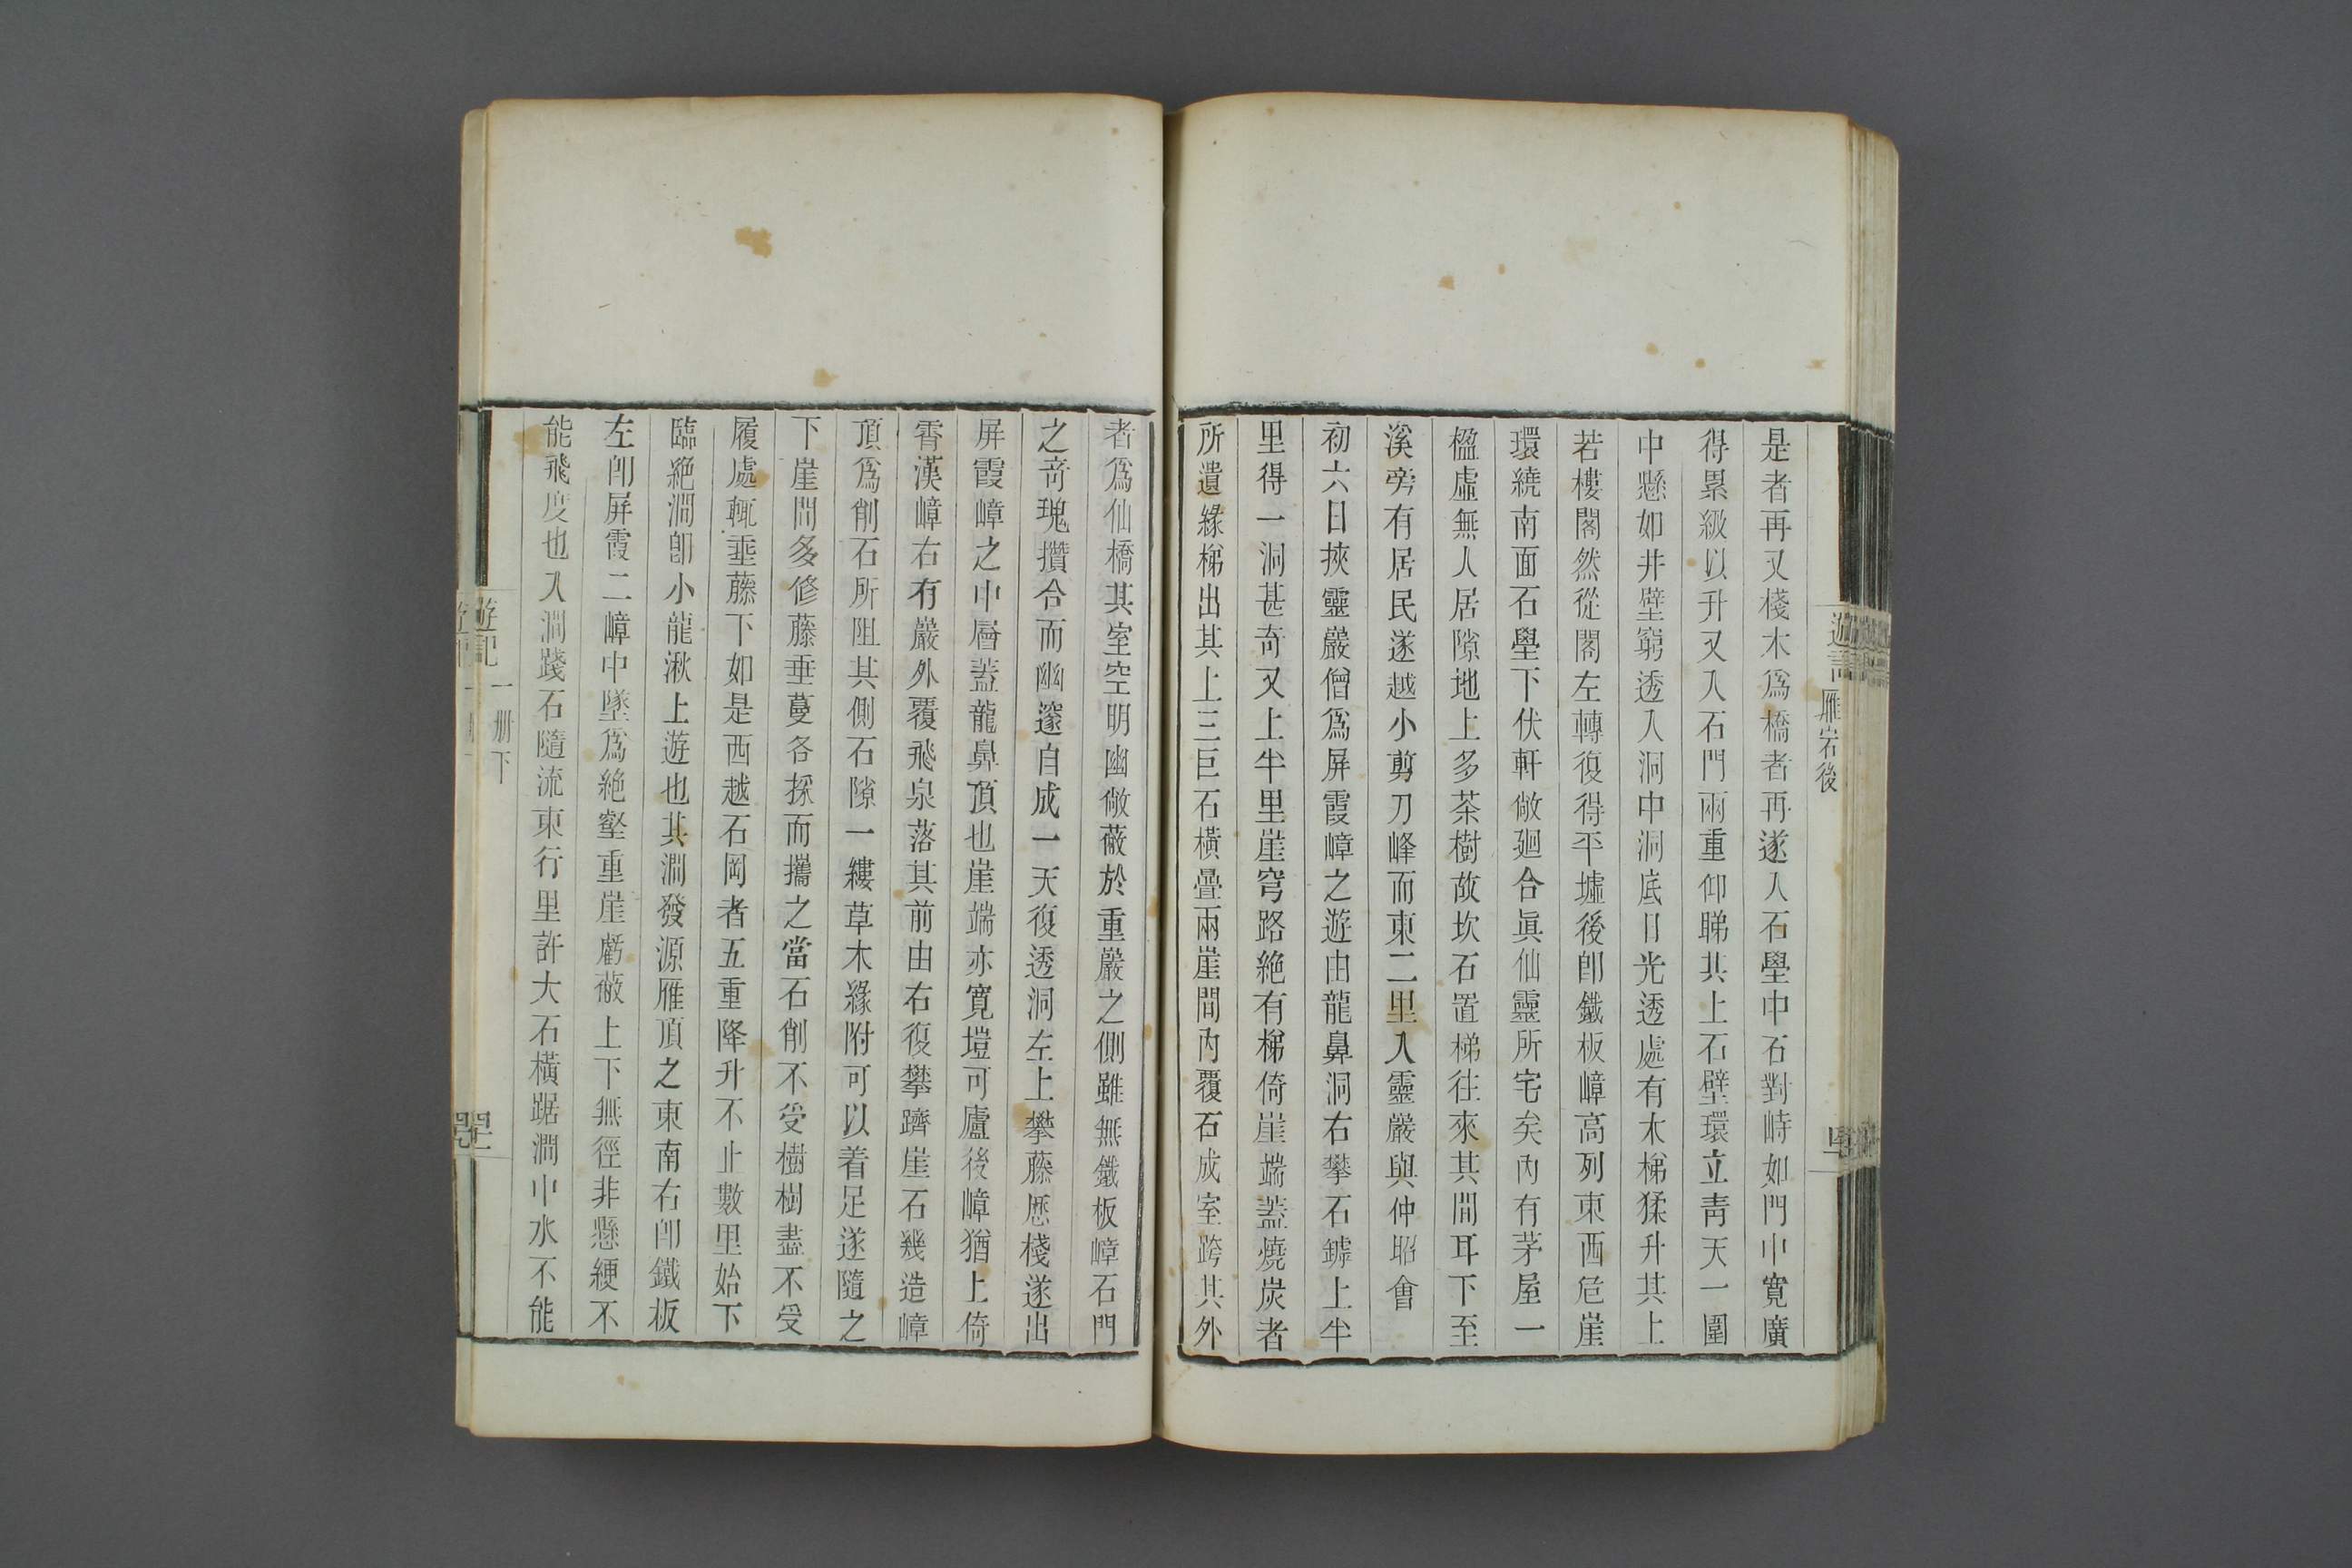 遊記 雁宕後
是者再又棧木爲橋者再遂入石壆中石對峙如門中寬廣
得累級以升又入石門兩重仰睇其上石壁環立靑天一圍
中懸如井壁窮透入洞中洞底日光透處有木梯猱升其上
若樓閣然從閣左轉復得平墟後卽鐵板嶂高列東西危崖
環繞南面石壆下伏軒敞廻合眞仙靈所宅矣內有茅屋一
楹虛無人居隙地上多茶樹故坎石置梯往來其間耳下至
溪旁有居民遂越小剪刀峰而東二里入靈巖與仲昭會
初六日挾靈巖僧爲屏霞嶂之遊由龍鼻洞右攀石罅上半
里得一洞甚奇又上半里崖穹路絶有梯倚崖端蓋燒炭者
所遺緣梯出其上三巨石橫疊兩崖間內覆石成室跨其外
者爲仙橋其室空明幽敞蔽於重巖之側雖無鐵板嶂石門
之奇瑰攢合而幽邃自成一天復透洞左上攀藤歷棧遂出
屏霞嶂之中層蓋龍鼻頂也崖端亦寬塏可廬後嶂猶上倚
霄漢嶂右有巖外覆飛泉落其前由右復攀躋崖石幾造嶂
頂爲削石所阻其側石隙一縷草木緣附可以着足遂隨之
下崖間多修藤垂蔓各採而攜之當石削不受樹樹盡不受
履處輒垂藤下如是西越石岡者五重降升不止數里始下
臨絶澗卽小龍湫上遊也其澗發源雁頂之東南右卽鐵板
左卽屏霞二嶂中墜爲絶壑重崖虧蔽上下無徑非懸綆不
能飛度也入澗踐石隨流東行里許大石橫踞澗中水不能
遊記 一册下